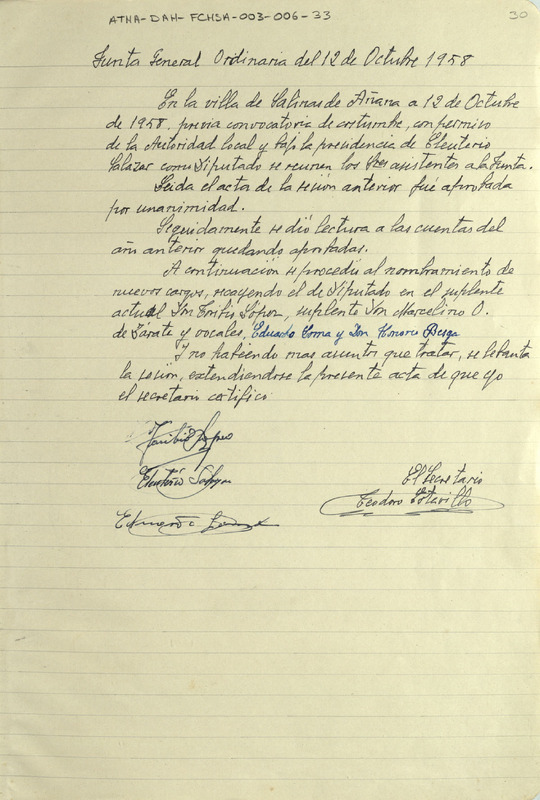 ATHA-DAH-FCHSA-003-006-33
30
Junta General Ordinaria del 12 de Octubre 1958
En la villa de Salinas de Añana a 12 de Octubre
de 1958, previa convocatoria de costumbre, con permiso
de la Autoridad local y bajo la presidencia de Eleuterio
Salazar como Diputado se reunen los Sres asistentes a la Junta.
Leida el acta de la sesión anterior fué aprobada
por unanimidad.
Seguidamente se dió lectura a las cuentas del
año anterior quedando aprobadas.
A continuación se procedió al nombramiento de
nuevos cargos, recayendo el de Diputado en el suplente
actual Don Toribio López, suplente Don Marcelino O.
de Zárate y vocales, Eduardo y Don Honorio
Y no habiendo mas asuntos que tratar, se levanta
la sesión, extendiendose la presente acta de que yo
el secretario certifico
Toribio Lopez
Eleuterio Salazar
El Secretario
Teodoro
Eduardo